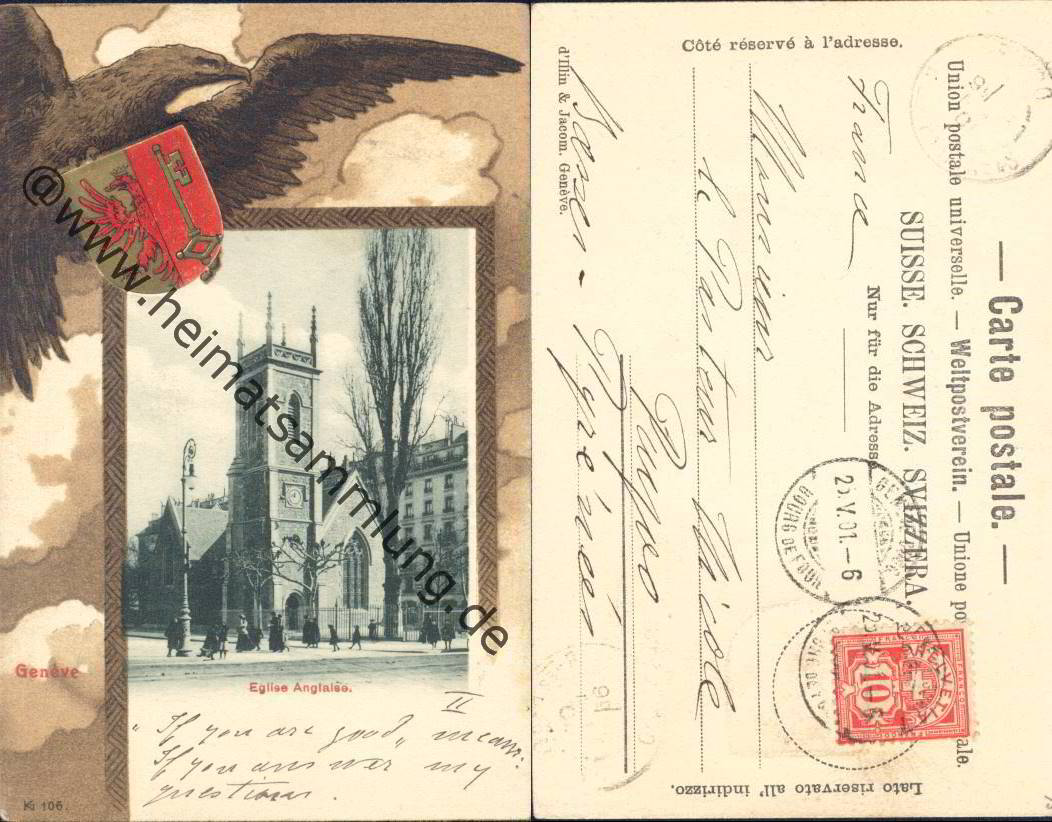 @www.heimatsammlung.de
Genève
Eglise Anglaise.
II
"If you are good„ means:
If you answer my
questions.
106.
Carte postale.
Union postale universelle. — Weltpostverein. — Unione po
ale.
SUISSE. SCHWEIZ. SVIZZERA
Nur für die Adresse
Côté réservé à l'adresse.
Lato riservato all' indirizzo.
d'Illin & Jacom. Genève.
France
Monsieur
le Pasteur
Pyrénées
BOURG DE FOUR
V.01.-6
FRANCO
HELVETIA
10